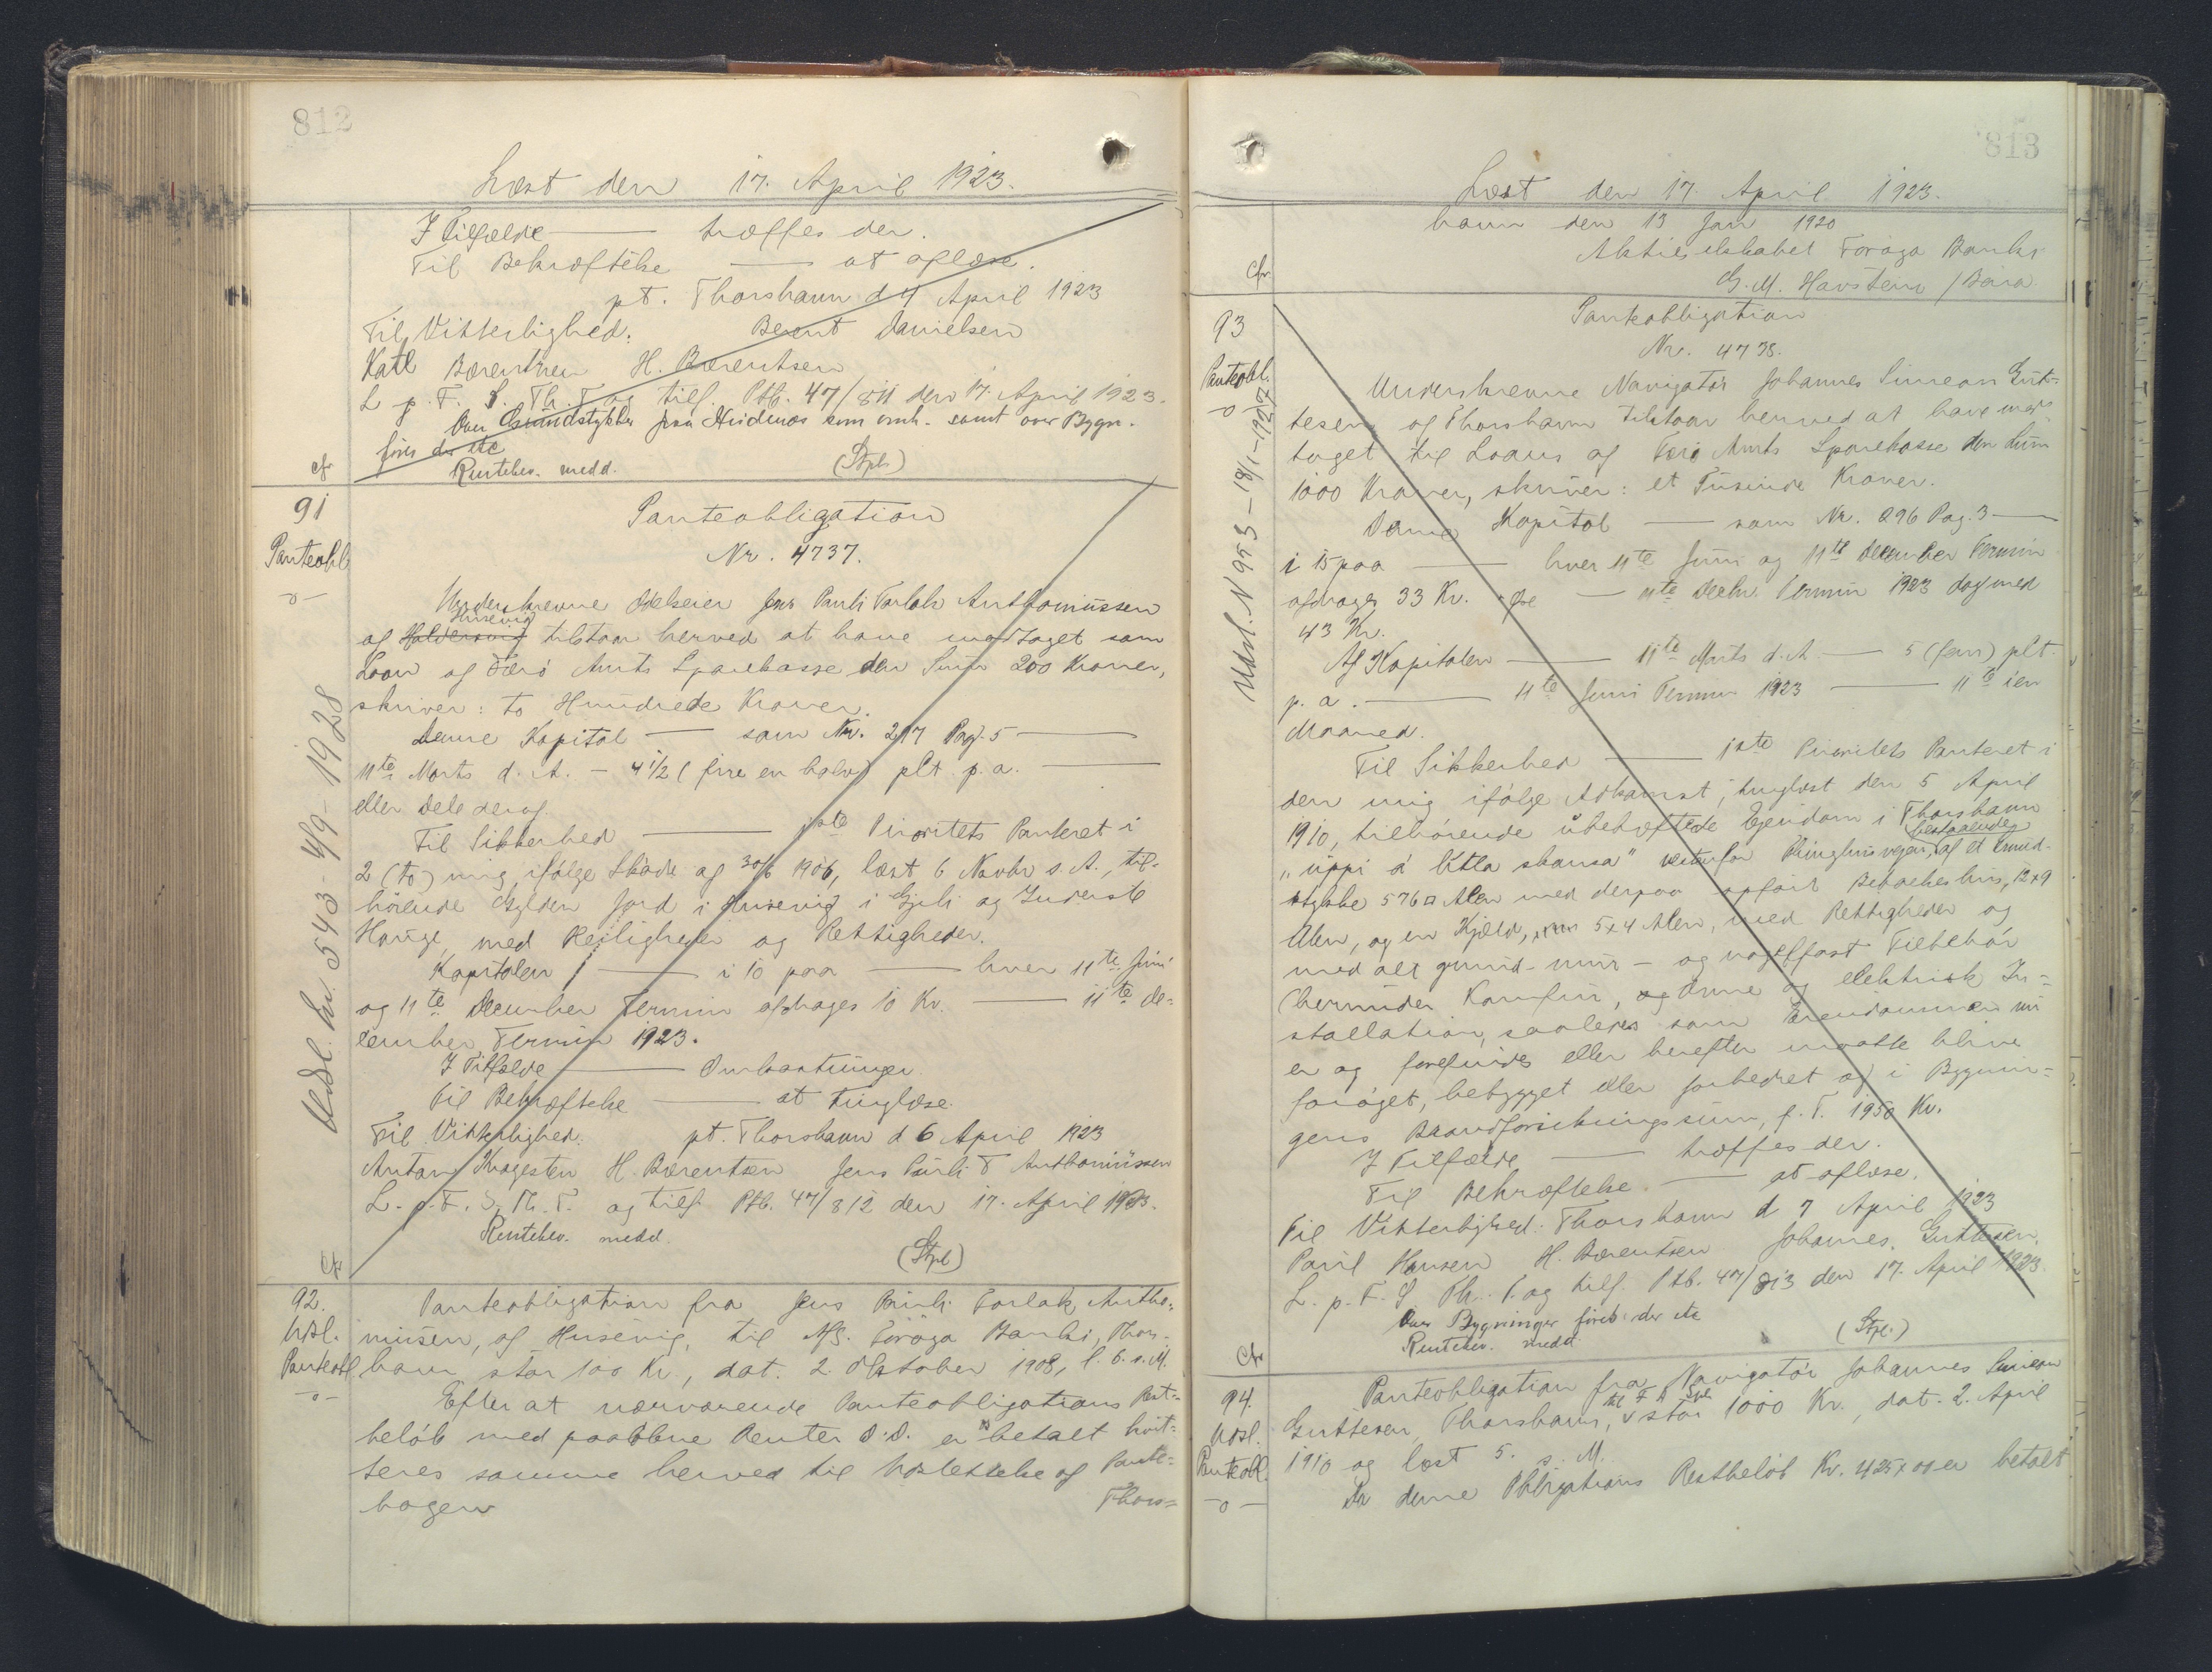 812
Læst den 17. April 1923.
I Tilfælde — træffes der.
Til Bekræftelse — at aflæse.
pt. Thorshavn d 4 April 1923
Til Vitterlighed. Berent Danielsen
Karl Bærentsen H. Bærentsen
L. p. F. S. Th. T. og tilf. Ptb. 47/811 den 17. April 1923.
Over Grundstykker fra Husdenes som omh. samt over Bygn.
føres der etc
cfr Rentebev. medd. (Stpl.)
91 Panteobligation
Panteobl Nr. 4737.
-o-
Underskrevne Odelseier Jens Pauli Torlak Anthoniussen
Husevig
af Haldersvig tilstaar herved at have modtaget som
Laan af Færø Amts Sparekasse den Sum 200 Kroner,
skriver: to Hundrede Kroner.
Denne Kapital — som Nr. 217 Pag. 5 —
11te Marts d. A. - 4 1/2 (fire en halv) plt p. a. —
eller Dele deraf.
Til Sikkerhed — 1ste Prioritets Panteret i
2 (to) mig, ifølge Skøde af 30/6 1906, læst 6 Novbr s. A., til-
hørende Gylden Jord i Husevig i Gjeli og Inderste
Hauge, med Herligheder og Rettigheder.
Kapitalen — i 10 paa — hver 11te Juni
og 11te December Termin afdrages 10 Kr. — 11te De-
cember Termin 1923.
I Tilfælde — Omkostninger.
Til Bekræftelse — at tinglæse.
Til Vitterlighed: pt. Thorshavn d 6 April 1923
Anton Kragesteen H. Bærentsen Jens Pauli T Anthoniussen
L. p. F. S. Th. T. og tilf. Ptb. 47/812 den 17. April 1923.
Rentebev. medd.
cfr (Stpl)
Udsl. Nr. 543 - 4/9 - 1928
92. Panteobligation fra Jens Pauli Torlak Antho-
Udsl. niussen, af Husevig, til A/S. Føroya Banki, Thors-
Panteobl. havn, stor 100 Kr, dat. 2. Oktober 1908, l. 6. s. M.
-o- Efter at nærværende Panteobligations Rest-
beløb med paaløbne Renter D.D. er betalt kvit-
teres samme herved til Udslettelse af Pante-
bogen Thors-
813
Læst den 17. April 1923.
havn den 13 Jan 1920
Aktieselskabet Føroya Banki
cfr. G. M. Havsteen / Bára
93 Panteobligation
Nr. 4738.
Panteobl.
-o-
Underskrevne Navigatør Johannes Simeon Gut-
tesen af Thorshavn tilstaar herved at have mod-
taget til Laans af Færø Amts Sparekasse den Sum
1000 Kroner, skriver: et Tusinde Kroner.
Denne Kapital — som Nr. 296 Pag. 3 —
i 15 paa — hver 11te Juni og 11te December Termin
afdrages 33 Kr. — 11te Decbr. Termin 1923 dog med
43 Kr.
Af Kapitalen — 11te Marts d. A — 5 (fem) plt.
p. a. — 11te Juni Termin 1923 — 11te i en
Maaned.
Til Sikkerhed — 1ste Prioritets Panteret i
den mig ifølge Adkomst, tinglæst den 5 April
1910, tilhørende ubehæftede Ejendom i Thorshavn
bestaaende
„uppi á litla skansa" vestenfor Thinghusvejen, af et Grund-
stykke 576 □ Alen med derpaa opført Beboelseshus, 12x9
Alen, og en Kjæld, 5x4 Alen, med Rettigheder og
med alt grund- mur- og nagelfast Tilbehør
(herunder Komfur, og Ovne og elektrisk In-
stallation, saaledes som Ejendommen nu
er og forefindes eller herefter maatte blive
forøget, bebygget eller forbedret og i Bygnin-
gens Brandforsikringssum, f. T. 1950 Kr.
I Tilfælde — træffes der.
Til Bekræftelse. — at aflæse.
Til Vitterlighed: Thorshavn d 7 April 1923
Paul Hansen H. Bærentsen Johannes. Guttesen.
L. p. F. S Th. T. og tilf. Ptb. 47/813 den 17. April 1923.
Over Bygninger foreb. der etc
Rentebev. medd (Stpl.)
cfr
Udsl. N 953 - 18/1 - 1927
94. Panteobligation fra Navigatør Johannes Simeon
Guttesen, Thorshavn, stor 1000 Kr., dat. 2. April
Udsl. 1910 og læst 5. s. M.
Panteobl. Da denne Obligations Restbeløb Kr. 425x00 er betalt
-o-